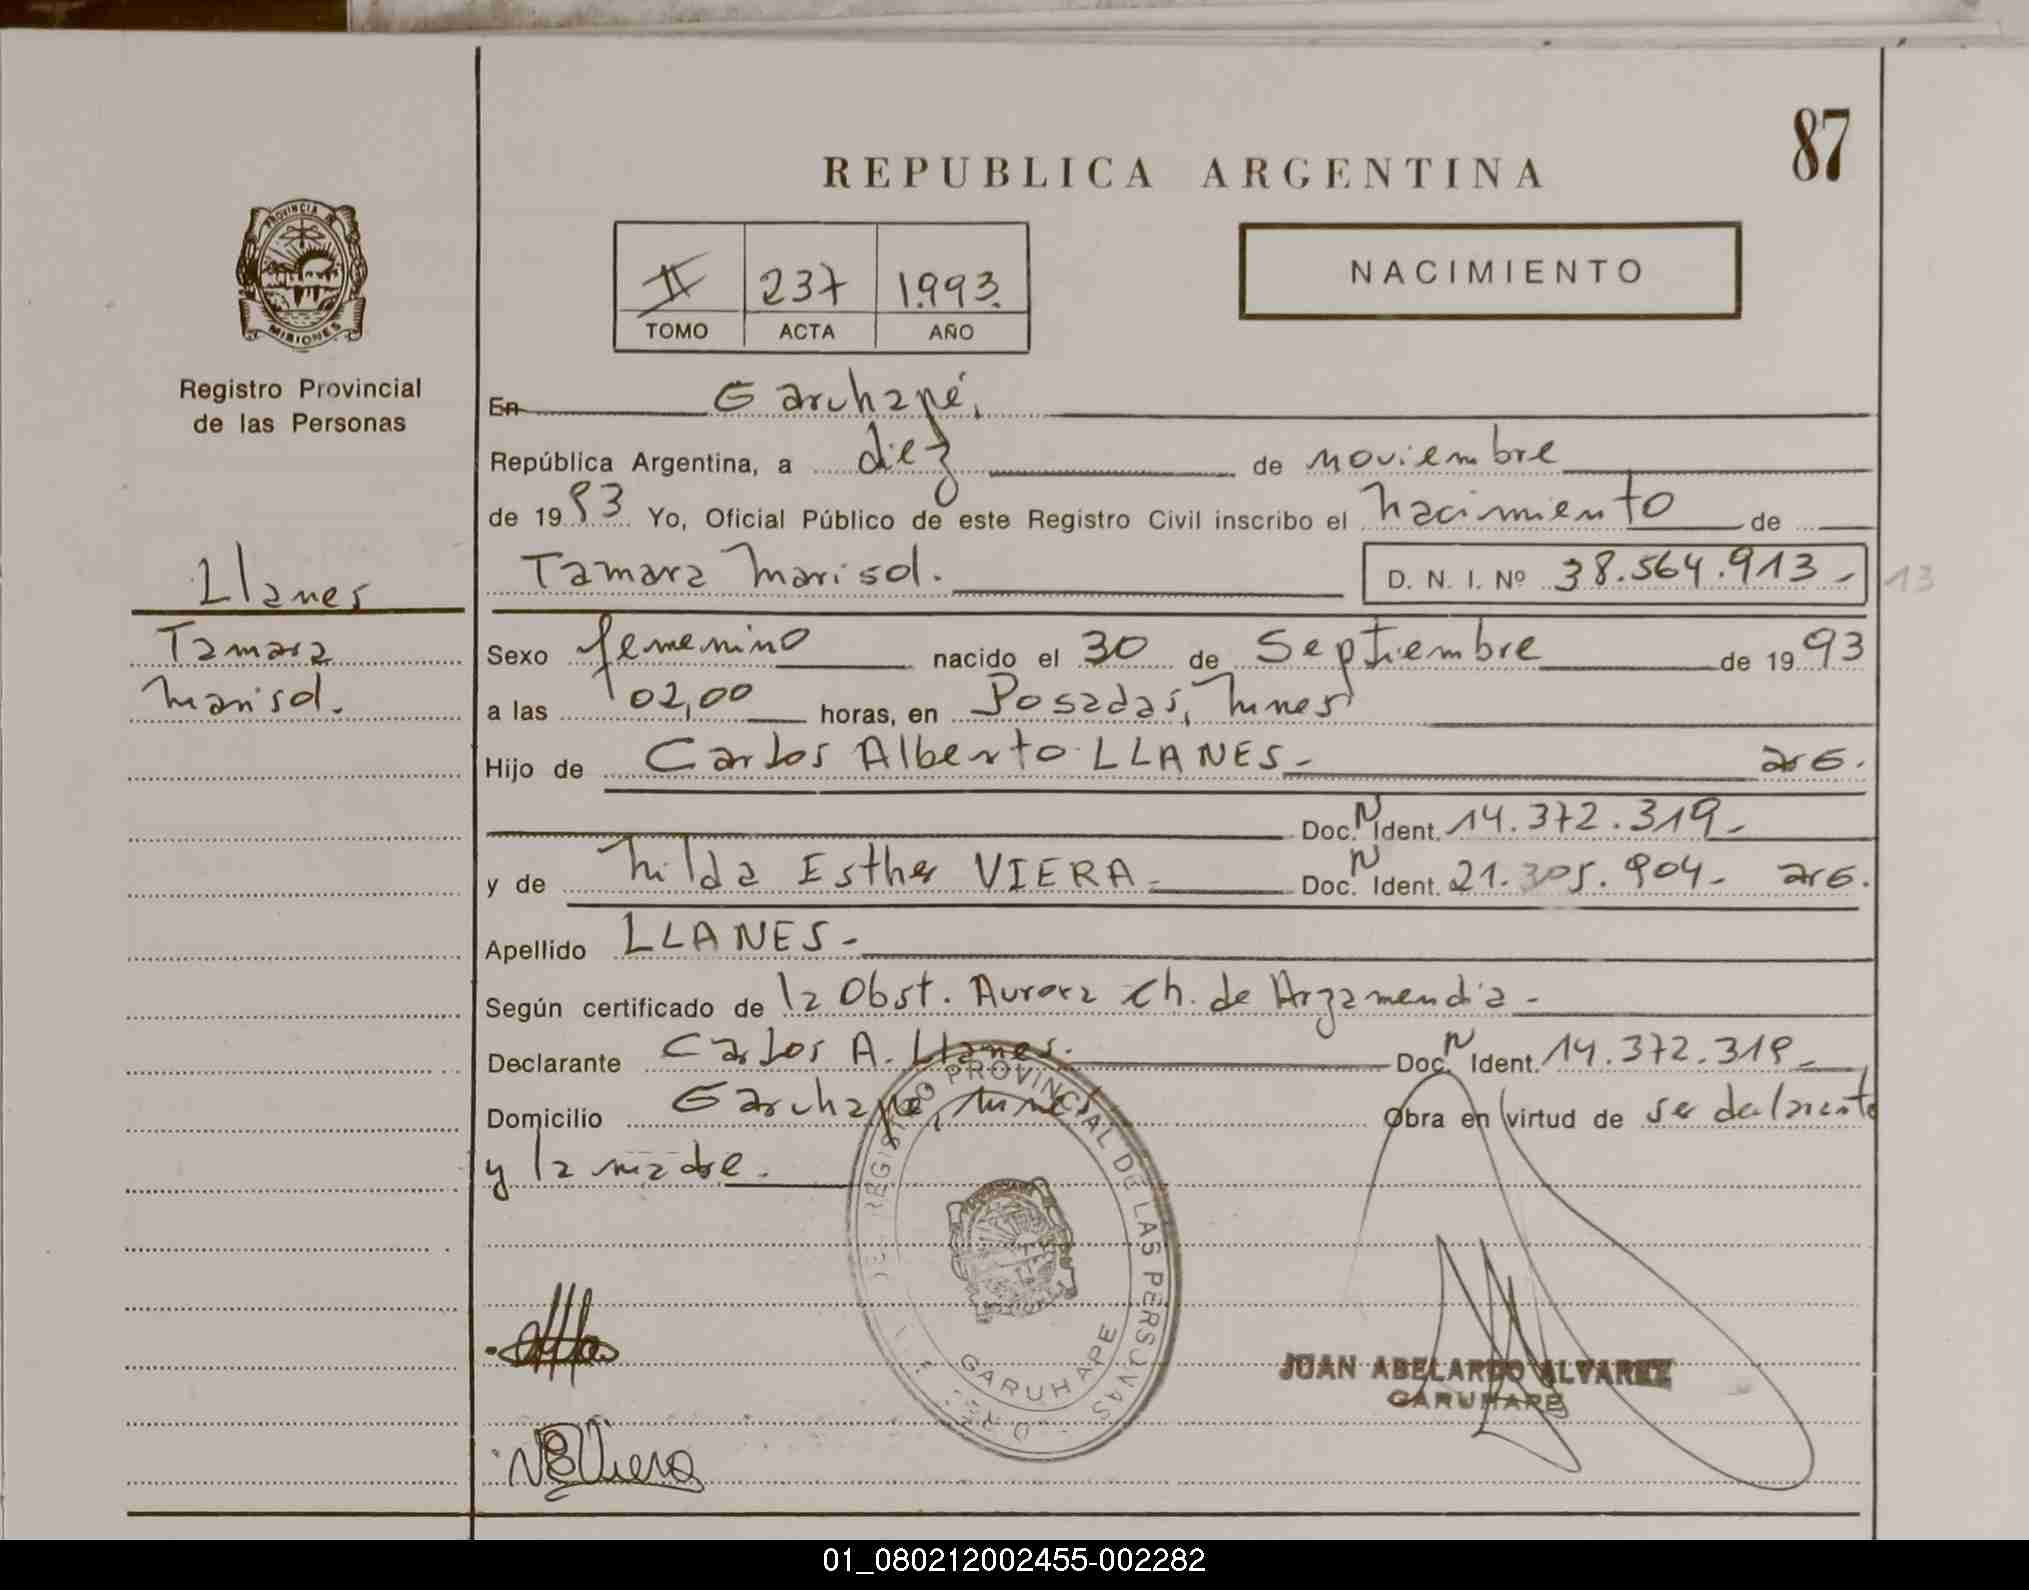 87
REPUBLICA ARGENTINA
PROVINCIA DE
MISIONES
II 237 1.993.
TOMO ACTA AÑO
NACIMIENTO
Registro Provincial
de las Personas
En Garuhapé,
República Argentina, a diez de noviembre
de 1993 Yo, Oficial Público de este Registro Civil inscribo el nacimiento de
Llanes
Tamara Marisol. D. N. I. Nº 38.564.913- 13
Tamara
Marisol.
Sexo femenino nacido el 30 de Septiembre de 1993
a las 02,00 horas, en Posadas, Mnes
Hijo de Carlos Alberto LLANES- arG.
Doc. N Ident. 14.372.319-
y de Nilda Esther VIERA- Doc. N Ident. 21.305.904- arG.
Apellido LLANES-
Según certificado de la Obst. Aurora Ch. de Argamendia-
Declarante Carlos A. Llanes. Doc. N Ident. 14.372.319-
Domicilio Garuhapé, Mnes Obra en virtud de ser declarante
y la madre.
REGISTRO PROVINCIAL DE LAS PERSONAS
GARUHAPE
JUAN ABELARDO ALVAREZ
GARUHAPE
NEViera
01_080212002455-002282